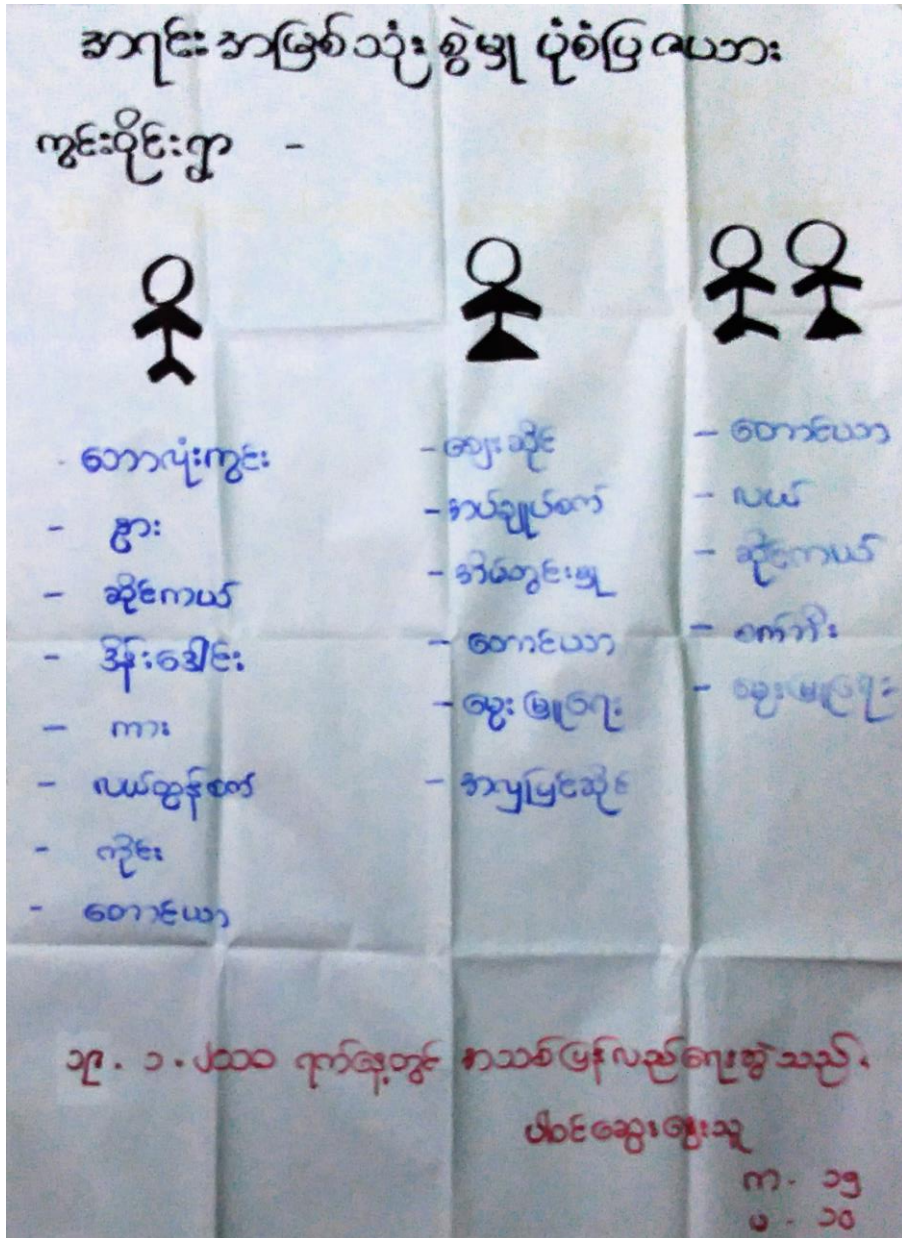 အရင်းအမြစ်သုံးစွဲမှု ပုံစံပြဇယား
ကွင်းဝိုင်းရွာ -
- ဘောလုံးကွင်း
- နွား
- ဆိုင်ကယ်
- ဒိန်းဒေါင်း
- ကား
- လယ်ထွန်စက်
- ကိုင်း
- တောင်ယာ
- ဈေးဆိုင်
- အပ်ချုပ်စက်
- အိမ်တွင်းမှု
- တောင်ယာ
- မွေးမြူရေး
- အလှပြင်ဆိုင်
- တောင်ယာ
- လယ်
- ဆိုင်ကယ်
- စက်ဘီး
- မွေးမြူရေး
၁၉.၁.၂၀၁၀ ရက်နေ့တွင် အသစ်ပြန်လည်ရေးဆွဲသည်.
ပါဝင်ဆွေးနွေးသူ
က - ၁၅
မ - ၁၀